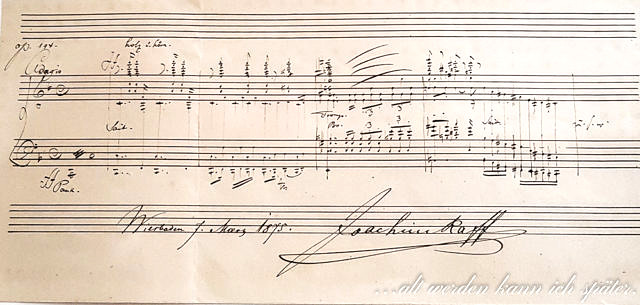 op. 194.
Holz u. Hörn.
Adagio
ff
Sait.
Tromp.
Pos.
3 3 3
Sait.
ff
Pauk.
Wiesbaden 7. März 1875. Joachim Raff
...alt werden kann ich später.